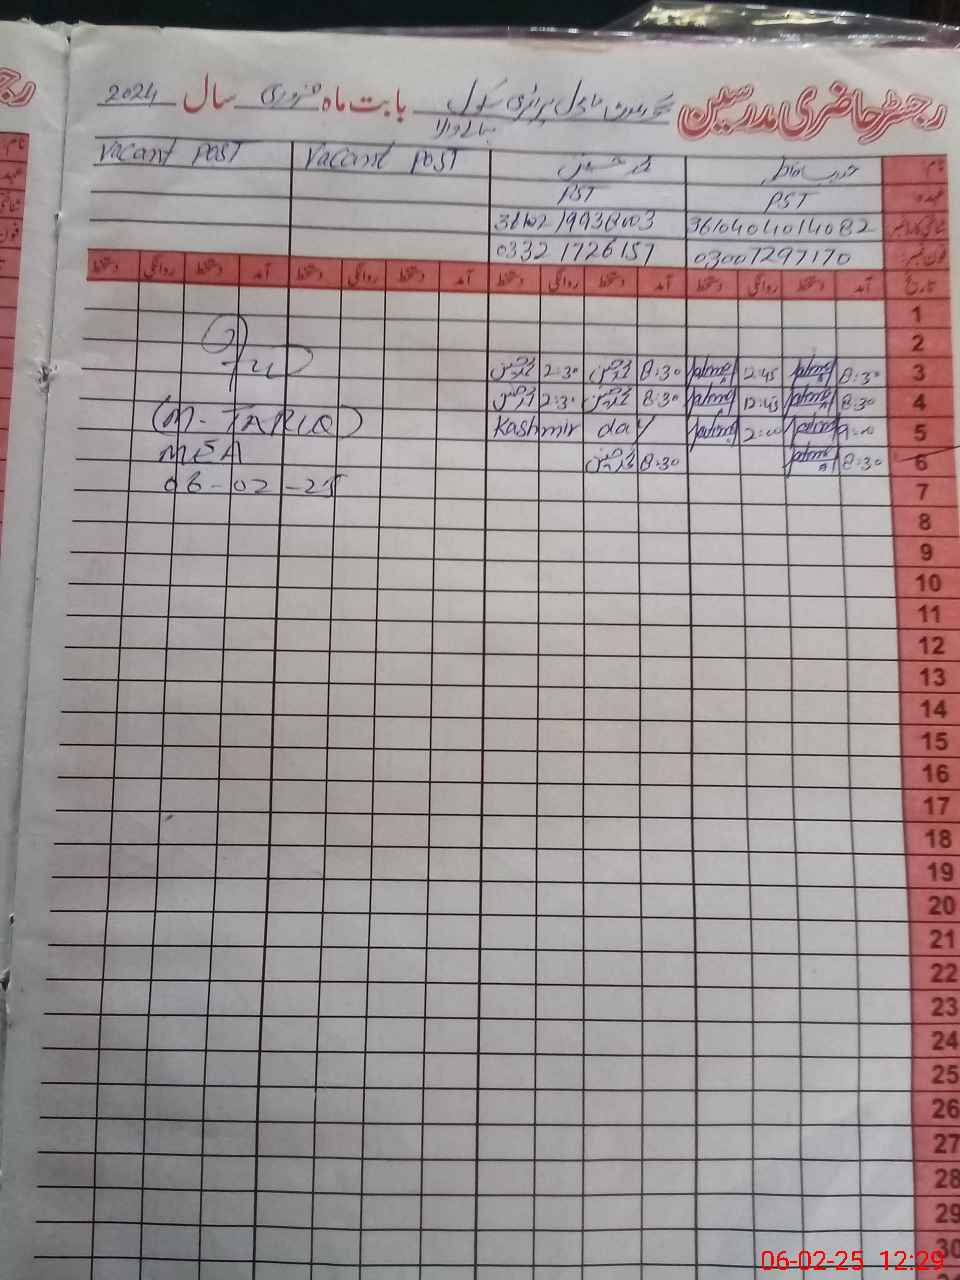 رجسٹر حاضری مدرسین گورنمنٹ ماڈل پرائمری سکول بابت ماہ فروری سال 2024
نام Vacant POST Vacant POST
عہدہ PST PST
شناختی کارڈ نمبر 3610404014082
فون نمبر 03007297170 0332 1726157
تاریخ آمد دستخط روانگی دستخط آمد دستخط روانگی دستخط آمد دستخط روانگی دستخط آمد دستخط روانگی دستخط
1
2
3 8:30 12:45 8:30 2:30
4 8:30 12:45 8:30 2:30
(M. TARIQ)
5 9:00 2:00 Kashmir day
MEA
6 8:30 8:30
06-02-25
7
8
9
10
11
12
13
14
15
16
17
18
19
20
21
22
23
24
25
26
27
28
29
30
06-02-25 12:29